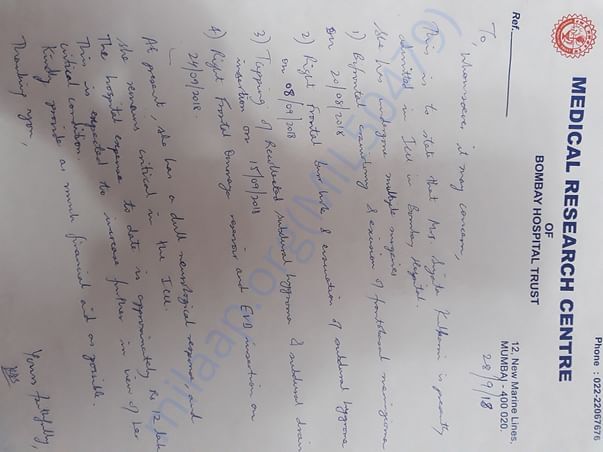 Phone : 022-22067676
MEDICAL RESEARCH CENTRE
OF
BOMBAY HOSPITAL TRUST
12, New Marine Lines,
MUMBAI - 400 020.
Ref.
28/9/18
To, whomsoever it may concern,
This is to state that Mrs Sujata Kulkarni is presently
admitted in ICU in Bombay Hospital.
She has undergone multiple surgeries
1) Bifrontal craniotomy & excision of frontobasal meningioma
on 20/08/2018
2) Right frontal burr hole & evacuation of subdural hygroma
on 08/09/2018
3) Tapping of subdural hygroma & subdural drain
insertion on 15/09/2018
4) Right Frontal Ommaya reservoir and EVD insertion on
24/09/2018.
At present, she has a dull neurological response and
she remains critical in the ICU.
The hospital expense to date is approximately Rs 12 lakh
This is expected to increase further in view of her
critical condition.
Kindly provide as much financial aid as possible.
Thanking you,
Yours faithfully,
milaap.org((MIL56479)